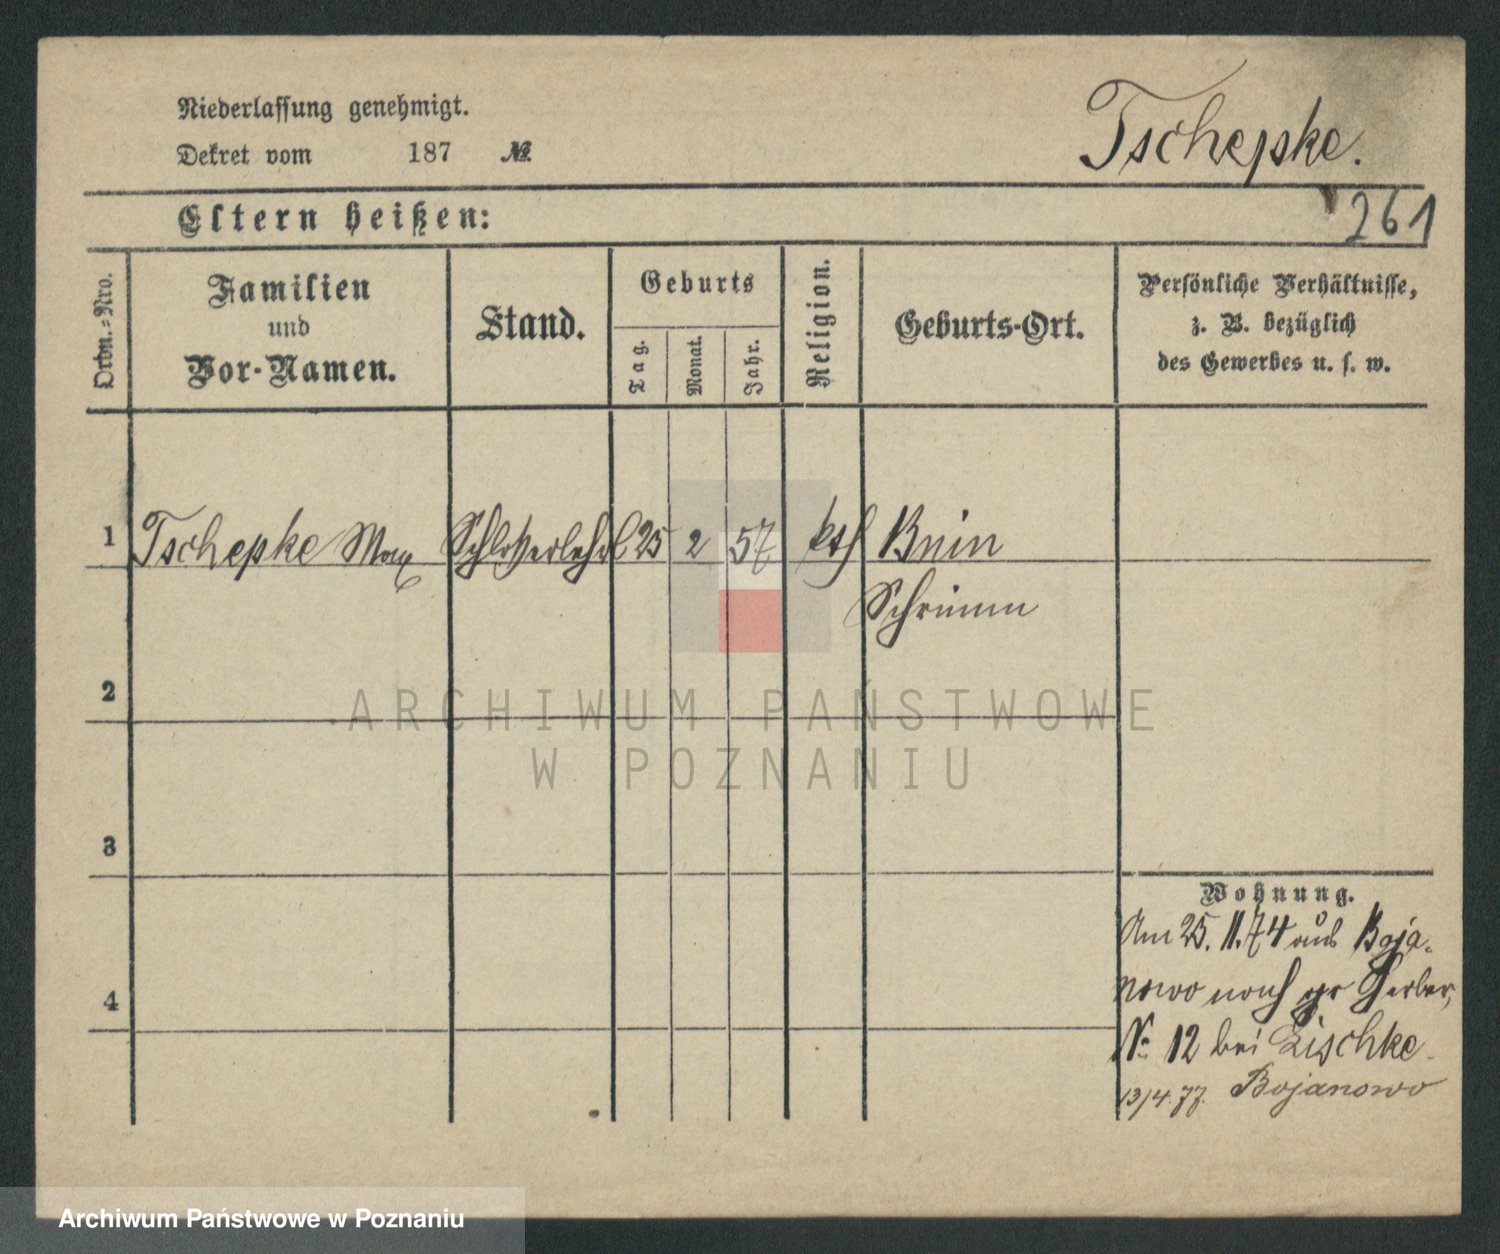 Niederlassung genehmigt.
Dekret vom 187 №
Tschepke.
Eltern heißen:
261
Ordn.=Nro.
Familien
und
Vor-Namen.
Stand.
Geburts
Tag.
Monat.
Jahr.
Religion.
Geburts-Ort.
Persönliche Verhältnisse,
z. B. bezüglich
des Gewerbes u. s. w.
1 Tschepke Max Schlosserlehrl 25 2 57 kth Bnin
Schrimm
2
ARCHIWUM PAŃSTWOWE
W POZNANIU
3
Wohnung.
Am 25. 11. 74 aus Boja-
nowo nach gr Gerber,
№ 12 bei Zischke.
4
13/4. 77. Bojanowo
Archiwum Państwowe w Poznaniu